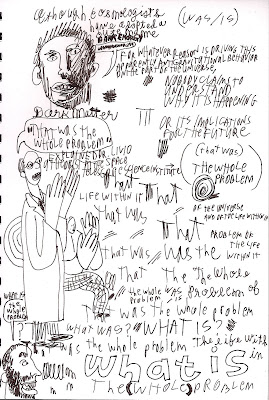 although cosmologists
have adopted a
(WAS/IS)
DARK ENERGY
FOR WHATEVER REASON IS DRIVING THIS
APPARENTLY ANTIGRAVITATIONAL BEHAVIOR
ON THE PART OF THE UNIVERSE,
NOBODY CLAIMS TO
UNDERSTAND
WHY IT IS HAPPENING
Dark Matter
OR ITS IMPLICATIONS
FOR THE FUTURE
THAT WAS the
WHOLE problem
EXPLAINS DR LIVIO
(that was)
THE WHOLE
PROBLEM
That
LIFE WITHIN IT
OF THE UNIVERSE
AND OF THE LIFE WITHIN IT
That was
PROBLEM OF
THE LIFE
WITHIN IT
That was was the
THAT THE The whole
the whole was problem of
Problem is
That was the whole problem
WHAT WAS? WHAT IS?
was the whole problem The life with
in
what is
THE (WHOLE) PROBLEM